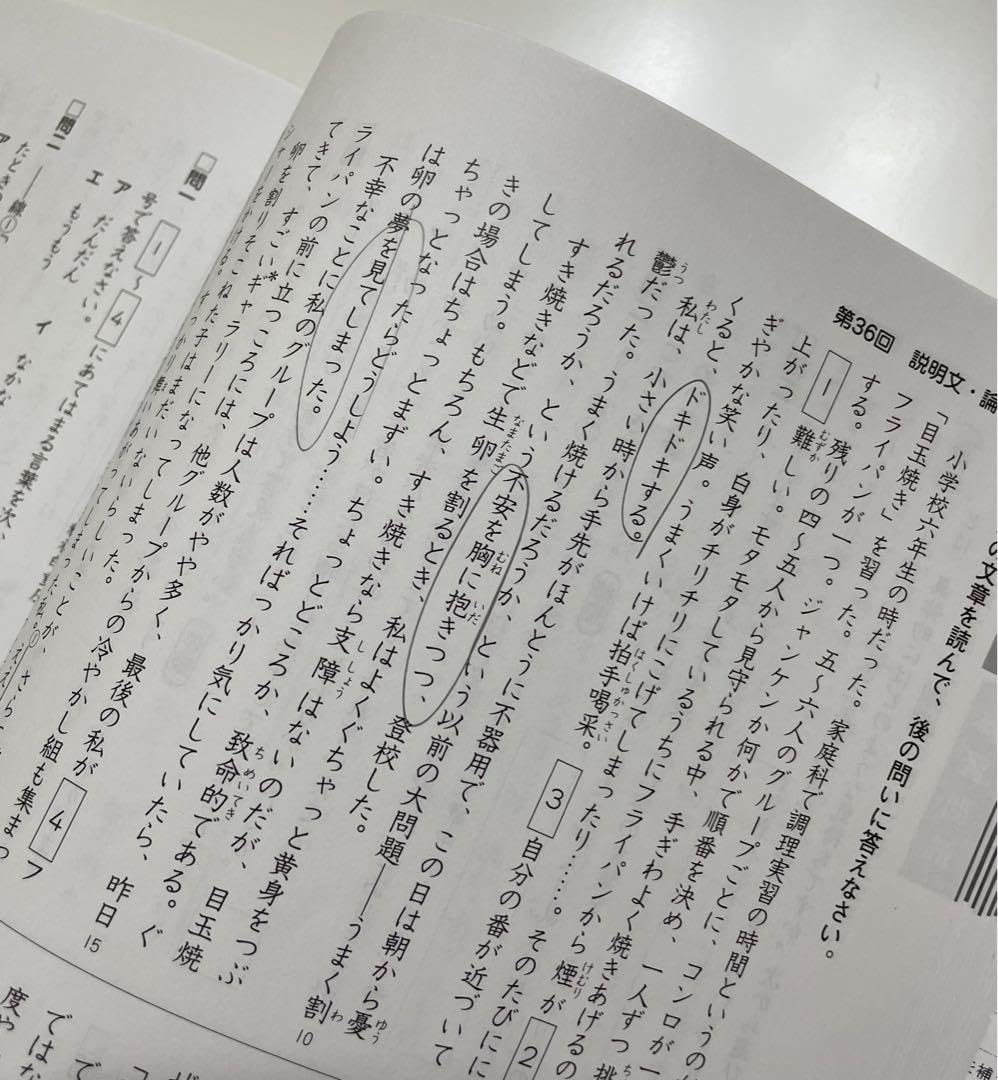 第36回 説明文・論
の文章を読んで、後の問いに答えなさい。
小学校六年生の時だった。家庭科で調理実習の時間というの
「目玉焼き」を習った。五〜六人のグループごとに、コンロが一
フライパンが一つ。ジャンケンか何かで順番を決め、一人ずつ挑
する。残りの四〜五人から見守られる中、手ぎわよく焼きあげるの
1 難しい。モタモタしているうちにフライパンから煙が 2
上がったり、白身がチリチリにこげてしまったり……。そのたびに
ぎやかな笑い声。うまくいけば拍手喝采。 3 自分の番が近づいて
くると、ドキドキする。
私は、小さい時から手先がほんとうに不器用で、この日は朝から憂
鬱だった。うまく焼けるだろうか、という以前の大問題――うまく割
れるだろうか、という不安を胸に抱きつつ、登校した。
すき焼きなどで生卵を割るとき、私はよくぐちゃっと黄身をつぶ
してしまう。もちろん、すき焼きなら支障はないのだが、目玉焼
きの場合はちょっとまずい。ちょっとどころか、致命的である。ぐ
ちゃっとなったらどうしよう……そればっかり気にしていたら、昨日
は卵の夢を見てしまった。
不幸なことに私のグループは人数がやや多く、最後の私が 4 フ
ライパンの前に立つころには、他グループからの冷やかし組も集まっ
てきて、すごい*ギャラリーになってしまった。
10
15
問一 1 〜 4 にあてはまる言葉を次
号で答えなさい。
ア だんだん イ なかな
エ もうもう
問二 ――線①「
たときの
ア